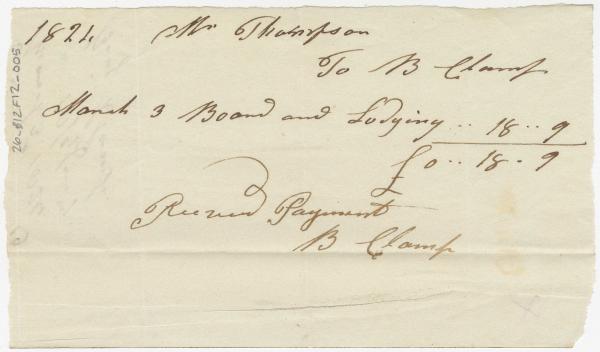 1824 Mr Thompson
To B Clamp
March 3 Board and Lodging .. 18 .. 9
£0 .. 18 - 9
Receivd Payment
B Clamp
26-B12F12-005